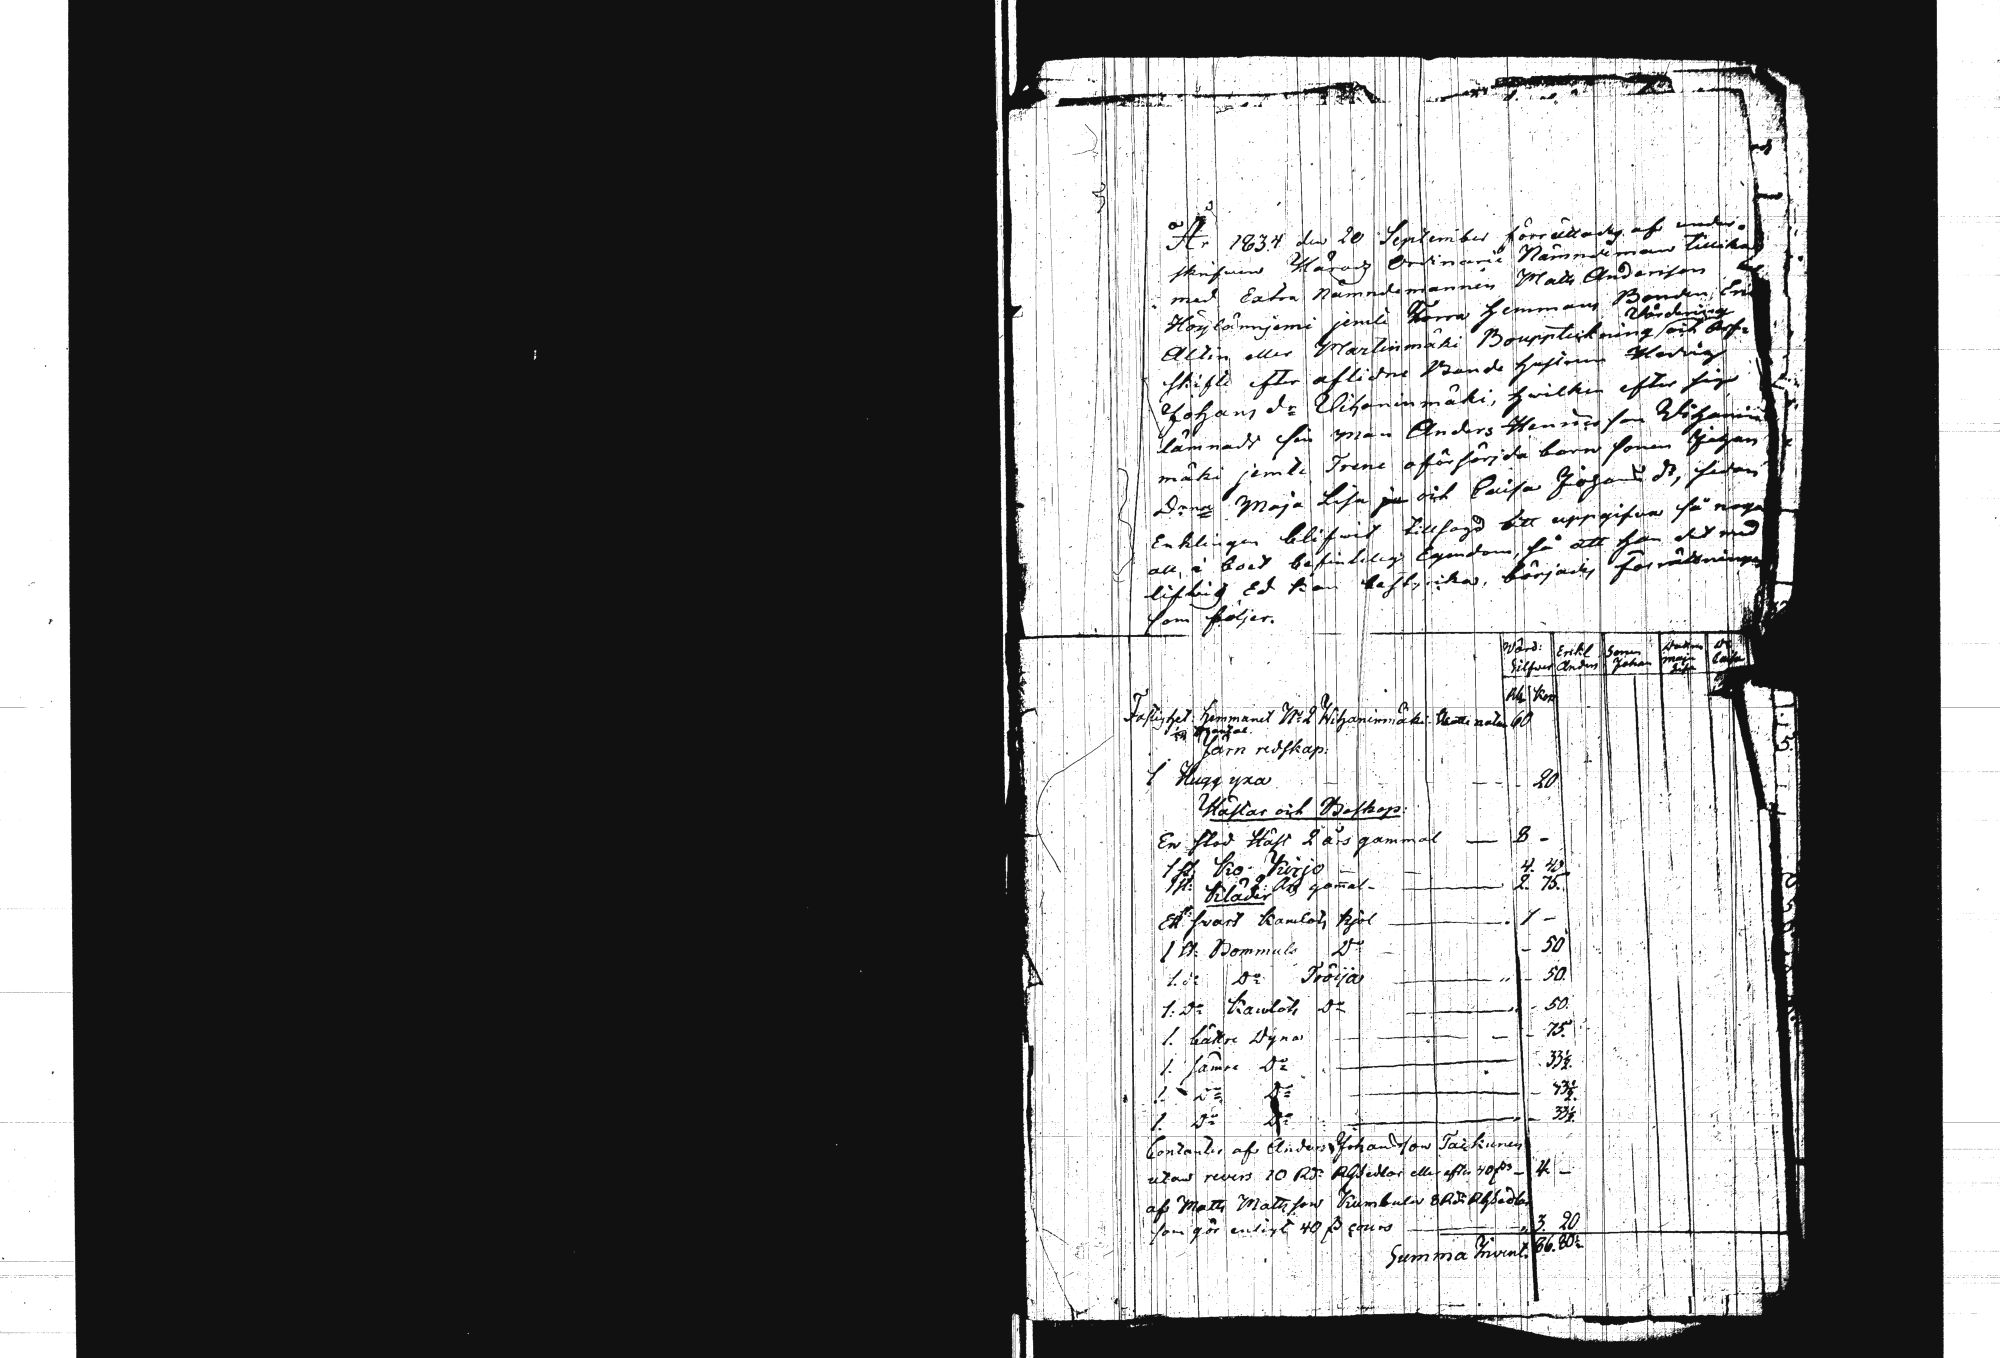 År 1834 den 20 September förrättades af under-
skrifven Härads Ordinarie Nämndeman tillika
med Extra Nämndemannen Matts Andersson
jemte Hemmans Bonden
Altin eller Martinmäki Bouppteckning Värdering och Arf-
skifte efter aflidne Bonde hustrun Hedvig
Johans dr Vihaninmäki, hvilken efter sig
lämnade sin man Anders Hansson Vihanin
mäki jemte Trene oförsörjda barn sonen Johan
Dr Maja Lisa och Caisa Johans dr, sedan
Enklingen blifvit tillsagd att uppgifva så noga
all i boet befintelig Egendom, så att han det med
liflig Ed kan bestyrka, börjades förrättningen
som följer.
Värd: Silfver Enkl Anders Sonen Johan Dottren Maja Lisa Dr Caisa
Rb Kop
Fastighet: Hemmanet No 2 Vihaninmäki 60
Mantal
Järn redskap:
1 Hugg yxa - - - 20
Hästar och Boskap:
En stod Häst 2 års gammal — 8 -
1 st Ko Kirjo 4. 40
1 st: års gamal - 2. 75.
Kläder
Ett svart Kamlots Kjol 1 -
1 st: Bommuls Do - 50
1. do Do Tröija - 50.
1. Do Kamlots Do - 50.
1. bättre Dyna - 75.
1. sämre Do 33½.
1. Do Do - 33½.
1. Do Do - 33½.
Contanter af Anders Johansson Taikunen
utan revers 10 Rd: Rgsedlar eller efter 40 - 4 -
af Matts Mattsson Kumbulen 8 Rd: Rgsedlar
som gör enligt 40 β cours 3. 20
Summa Invent. 86. 80½